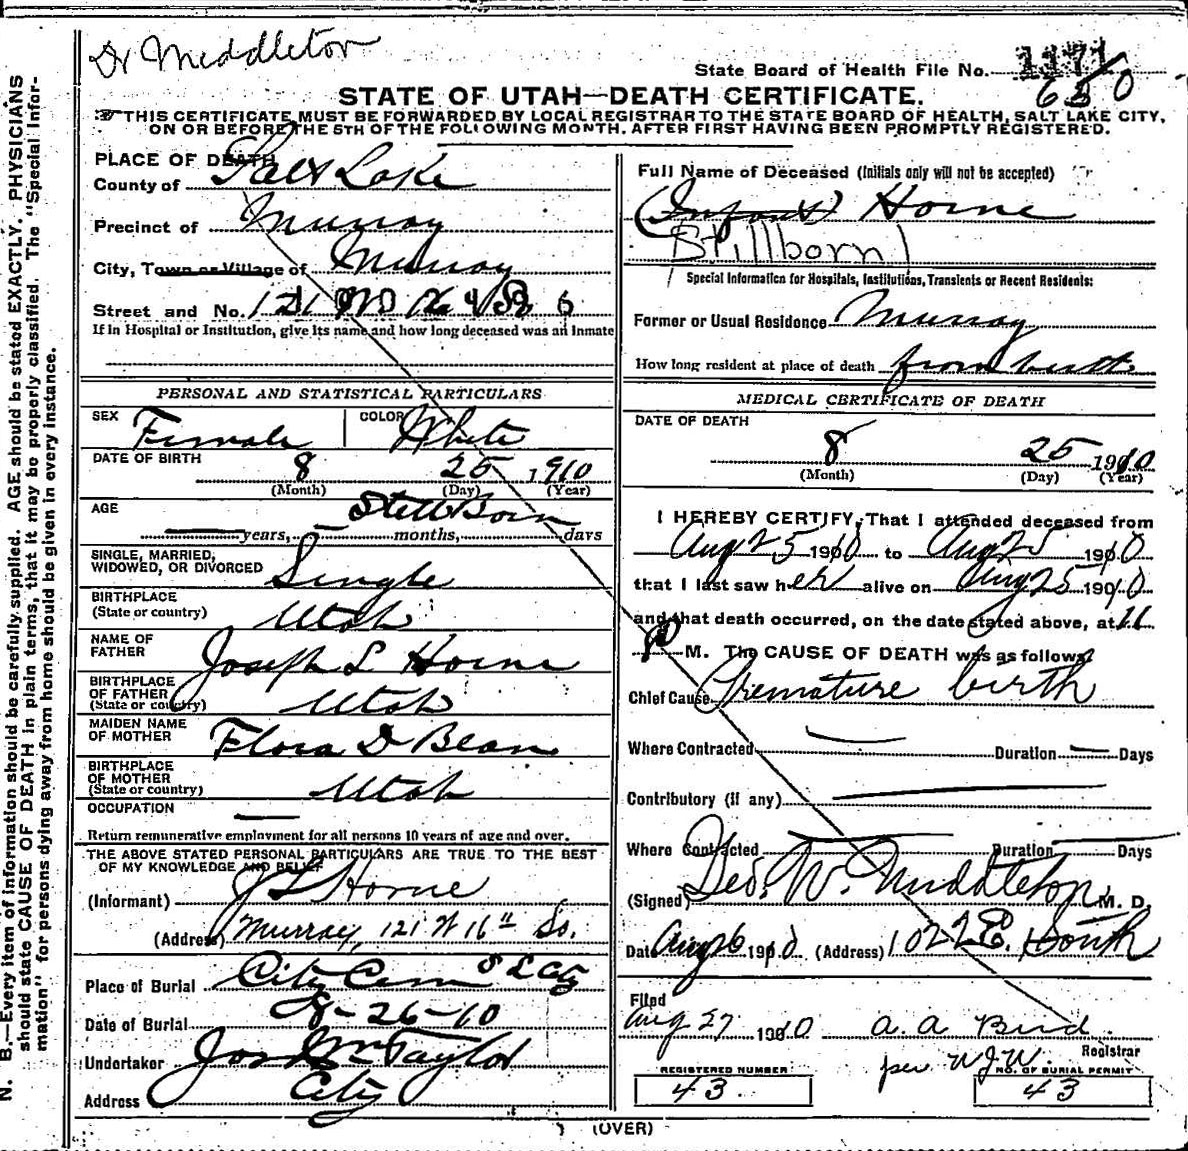 Dr Middleton
State Board of Health File No. 1171
630
STATE OF UTAH—DEATH CERTIFICATE.
THIS CERTIFICATE MUST BE FORWARDED BY LOCAL REGISTRAR TO THE STATE BOARD OF HEALTH, SALT LAKE CITY,
ON OR BEFORE THE 5TH OF THE FOLLOWING MONTH, AFTER FIRST HAVING BEEN PROMPTLY REGISTERED.
PLACE OF DEATH
County of Salt Lake
Precinct of Murray
City, Town or Village of Murray
Street and No. 121
If in Hospital or Institution, give its name and how long deceased was an Inmate
PERSONAL AND STATISTICAL PARTICULARS
SEX Female COLOR White
DATE OF BIRTH 8 25 1910
(Month) (Day) (Year)
AGE Still Born
years, months, days
SINGLE, MARRIED,
WIDOWED, OR DIVORCED Single
BIRTHPLACE
(State or country) Utah
NAME OF
FATHER Joseph L Horne
BIRTHPLACE
OF FATHER
(State or country) Utah
MAIDEN NAME
OF MOTHER Flora D Bean
BIRTHPLACE
OF MOTHER
(State or country) Utah
OCCUPATION
Return remunerative employment for all persons 10 years of age and over.
THE ABOVE STATED PERSONAL PARTICULARS ARE TRUE TO THE BEST
OF MY KNOWLEDGE AND BELIEF
(Informant) J L Horne
(Address) Murray, 121 W 16" So.
Place of Burial City Cem S L City
Date of Burial 8-26-10
Undertaker Jos Wm Taylor
Address City
Full Name of Deceased (Initials only will not be accepted)
(Infant) Horne
Stillborn
Special Information for Hospitals, Institutions, Transients or Recent Residents:
Former or Usual Residence Murray
How long resident at place of death from birth
MEDICAL CERTIFICATE OF DEATH
DATE OF DEATH
8 25 1910
(Month) (Day) (Year)
I HEREBY CERTIFY, That I attended deceased from
Aug 25 1910 to Aug 25 1910
that I last saw her alive on Aug 25 1910
and that death occurred, on the date stated above, at 11
P M. The CAUSE OF DEATH was as follows:
Chief Cause Premature birth
Where Contracted Duration Days
Contributory (if any)
Where Contracted Duration Days
(Signed) Geo. W. Middleton, M. D.
Date Aug 26 1910 (Address) 1022 E. South
Filed
Aug 27 1910 A. A. Bird
Registrar
per W J W.
REGISTERED NUMBER
43
NO. OF BURIAL PERMIT
43
(OVER)
N. B.—Every item of information should be carefully supplied. AGE should be stated EXACTLY. PHYSICIANS
should state CAUSE OF DEATH in plain terms, that it may be properly classified. The "Special Infor-
mation" for persons dying away from home should be given in every instance.